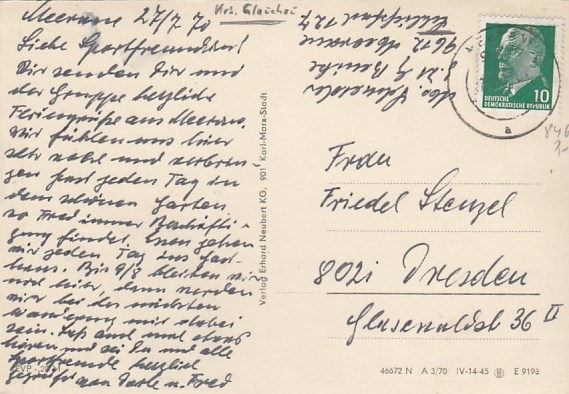 Meerane 27/7 70
Krs. Glauchau
Liebe Sportfreundin!
Wir senden Dir und
der Gruppe herzliche
Feriengrüße aus Meerane.
Wir fühlen uns hier
sehr wohl und verbrin-
gen fast jeden Tag in
dem schönen Garten
wo Fred immer Beschäfti-
gung findet. Essen gehen
wir jeden Tag ins Gast-
haus. Bis 9/8 bleiben wir
noch hier, dann werden
wir bei der nächsten
Wanderung mit dabei
sein. Laß auch mal etwas
hören und sei Du und alle
Sportfreunde herzlich
gegrüßt von u. Fred
EVP
9612 Meerane
Verlag Erhard Neubert KG, 901 Karl-Marx-Stadt
DEUTSCHE
DEMOKRATISCHE REPUBLIK
10
a
846
Frau
Friedel Stenzel
8021 Dresden
36 II
46672 N A 3/70 IV-14-45 E 9198